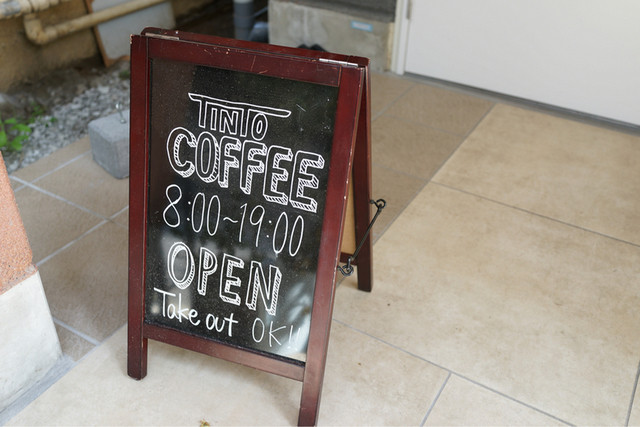 TINTO
COFFEE
8:00~19:00
OPEN
Take out OK!!